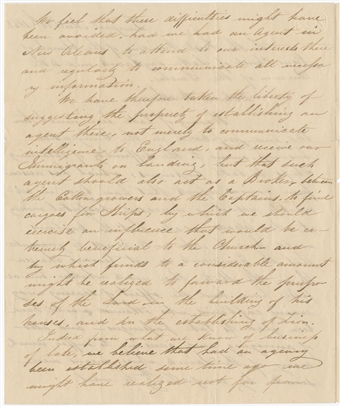 We feel that these difficulties might have
been avoided, had we had an Agent in
New Orleans to attend to our interests there
and regularly to communicate all necessa
ry information.
We have therefore taken the liberty of
suggesting the propriety of establishing an
agent there, not merely to communicate
intelligence to England, and receive our
Immigrants on landing, but that such
agent should also act as a Broker, between
the Cottongrowers and the Captains, to find
cargoes for Ships, by which we should
exercise an influence that would be ex-
tremely beneficial to the Church and
by which funds to a considerable amount
might be realized to forward the purpo-
ses of the Lord in the building of his
houses, and in the establishing of Zion.
Indeed from what we know of business
of late, we believe that had an agency
been established some time ago we
might have realized not far from